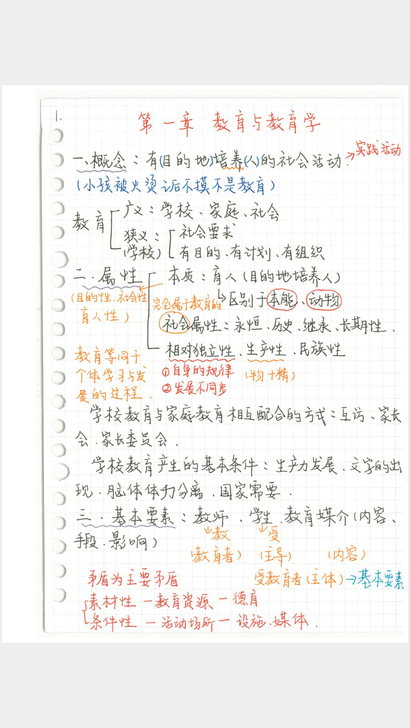 1.
第一章 教育与教育学
一、概念：有(目的地)培养(人)的社会活动→实践活动
(小孩被火烫后不摸不是教育)
教育
广义：学校、家庭、社会
狭义：社会要求
(学校) 有目的、有计划、有组织
二、属性
本质：育人(目的地培养人)
(目的性、社会性
育人性)
完全属于教育的
↳区别于本能、动物
社会属性：永恒、历史、继承、长期性、
相对独立性、生产性、民族性
教育等同于
个体学习与发
展的过程、
①自身的规律
②发展不同步
(物+精)
学校教育与家庭教育相互配合的方式：互访、家长
会、家长委员会、
学校教育产生的基本条件：生产力发展、文字的出
现、脑体体力分离、国家需要、
三、基本要素：教师、学生、教育媒介(内容、
手段、影响)
教 受
(教育者) (主导) (内容)
矛盾为主要矛盾
受教育者(主体)→基本要素
素材性—教育资源—德育
条件性—活动场所—设施、媒体、